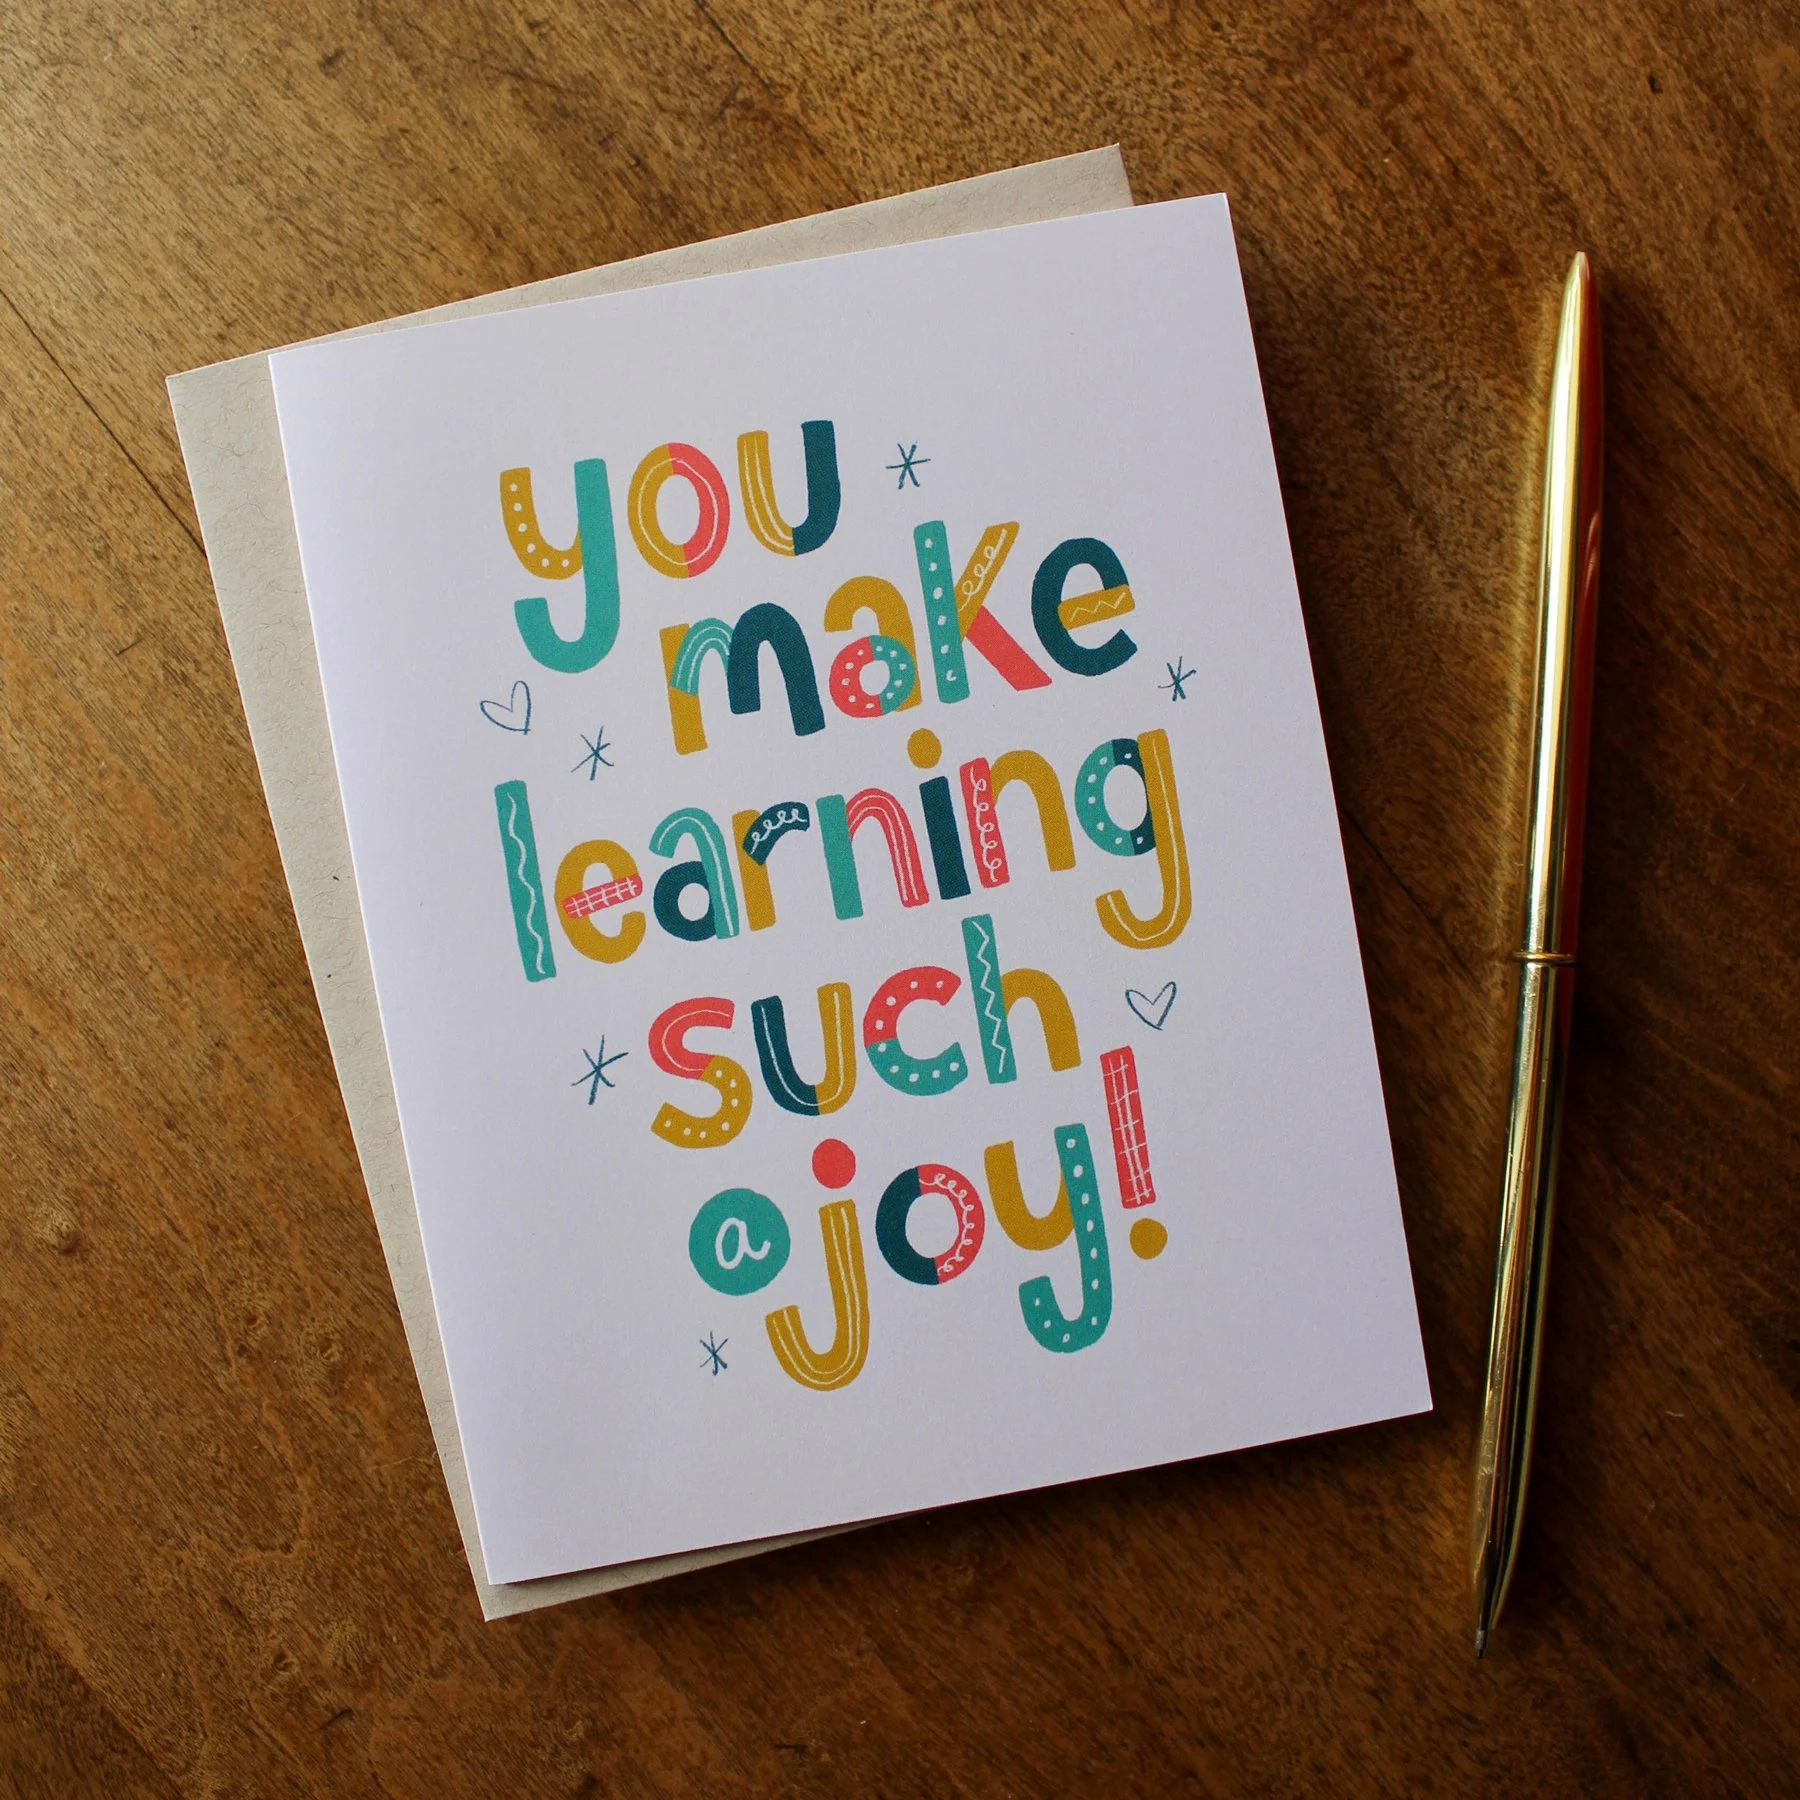 you
make
learning
such
a joy!